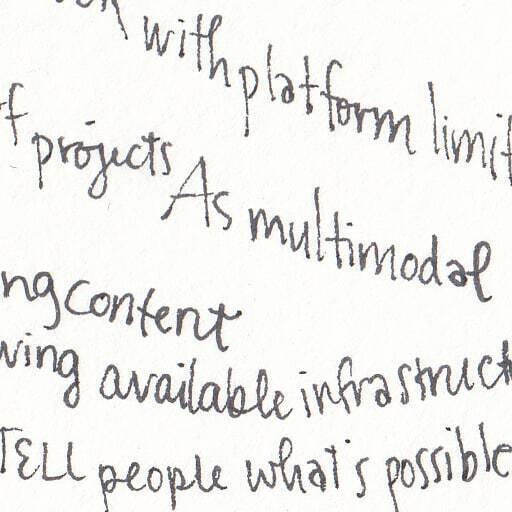 with platform limit
of projects As multimodal
ng content
ving available infrastruct
TELL people what's possible